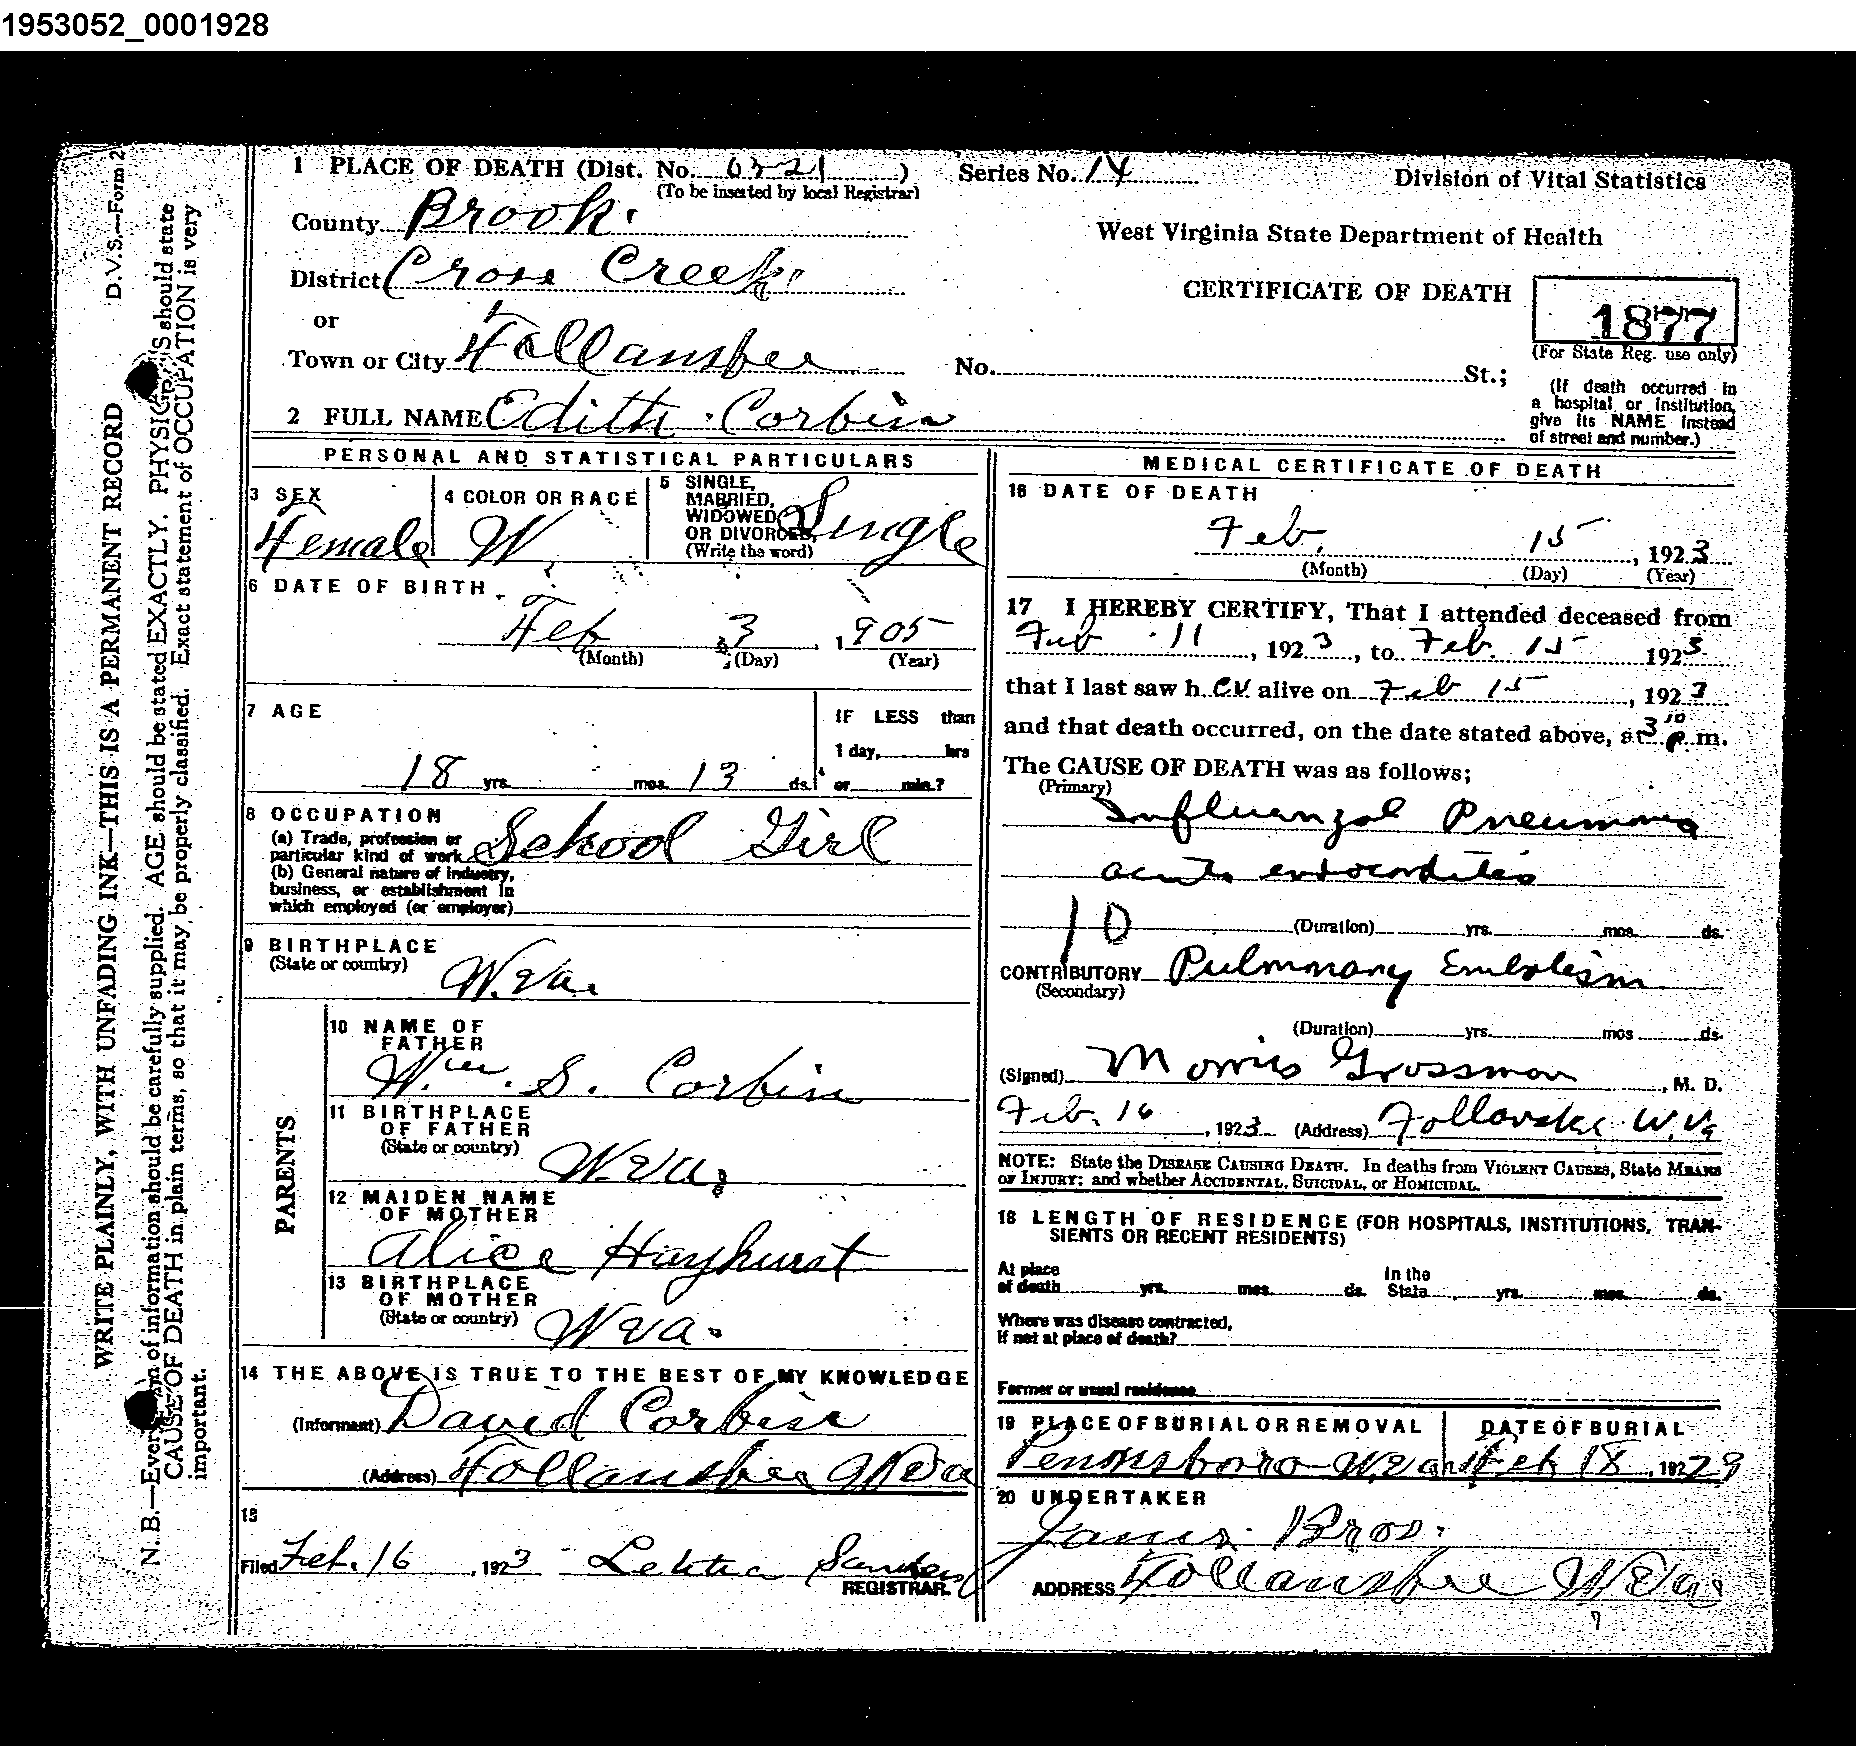 1953052_0001928
D.V.S.—Form 2
WRITE PLAINLY, WITH UNFADING INK—THIS IS A PERMANENT RECORD
N. B.—Every item of information should be carefully supplied. AGE should be stated EXACTLY. PHYSICIANS should state
CAUSE OF DEATH in plain terms, so that it may be properly classified. Exact statement of OCCUPATION is very
important.
1 PLACE OF DEATH (Dist. No. 21 ) Series No. 14
(To be inserted by local Registrar)
Division of Vital Statistics
County Brook.
West Virginia State Department of Health
District Cross Creek
CERTIFICATE OF DEATH
1877
(For State Reg. use only)
or
Town or City Follansbee No. St.;
(If death occurred in
a hospital or institution,
give its NAME instead
of street and number.)
2 FULL NAME Edith Corbin
PERSONAL AND STATISTICAL PARTICULARS
3 SEX
Female
4 COLOR OR RACE
W
5 SINGLE,
MARRIED,
WIDOWED
OR DIVORCED
(Write the word)
Single
6 DATE OF BIRTH
Feb 3, 1905
(Month) (Day) (Year)
7 AGE
18 yrs. mos. 13 ds.
IF LESS than
1 day, hrs
or min.?
8 OCCUPATION
(a) Trade, profession or
particular kind of work School Girl
(b) General nature of industry,
business, or establishment in
which employed (or employer)
9 BIRTHPLACE
(State or country)
W.Va.
PARENTS
10 NAME OF
FATHER
Wm. S. Corbin
11 BIRTHPLACE
OF FATHER
(State or country)
W.Va.
12 MAIDEN NAME
OF MOTHER
Alice Hayhurst
13 BIRTHPLACE
OF MOTHER
(State or country)
W Va.
14 THE ABOVE IS TRUE TO THE BEST OF MY KNOWLEDGE
(Informant) David Corbin
(Address) Follansbee W Va
15
Filed Feb. 16, 1923 Letitia
REGISTRAR.
MEDICAL CERTIFICATE OF DEATH
16 DATE OF DEATH
Feb. 15, 1923
(Month) (Day) (Year)
17 I HEREBY CERTIFY, That I attended deceased from
Feb 11, 1923, to Feb. 15 1923
that I last saw h er alive on Feb 15, 1923
and that death occurred, on the date stated above, at 3 10 p. m.
The CAUSE OF DEATH was as follows;
(Primary)
Influenzal Pneumonia
acute endocarditis
10
(Duration) yrs. mos. ds.
CONTRIBUTORY Pulmonary Embolism
(Secondary)
(Duration) yrs. mos ds.
(Signed) Morris Grossman, M. D.
Feb. 16, 1923 (Address) Follansbee W. Va
NOTE: State the DISEASE CAUSING DEATH. In deaths from VIOLENT CAUSES, State MEANS
OF INJURY; and whether ACCIDENTAL, SUICIDAL, or HOMICIDAL.
18 LENGTH OF RESIDENCE (FOR HOSPITALS, INSTITUTIONS, TRAN-
SIENTS OR RECENT RESIDENTS)
At place
of death yrs. mos. ds.
In the
State yrs. mos. ds.
Where was disease contracted,
if not at place of death?
Former or usual residence
19 PLACE OF BURIAL OR REMOVAL
Pennsboro W Va
DATE OF BURIAL
Feb 18, 192
20 UNDERTAKER
Bros.
ADDRESS Follansbee W Va.